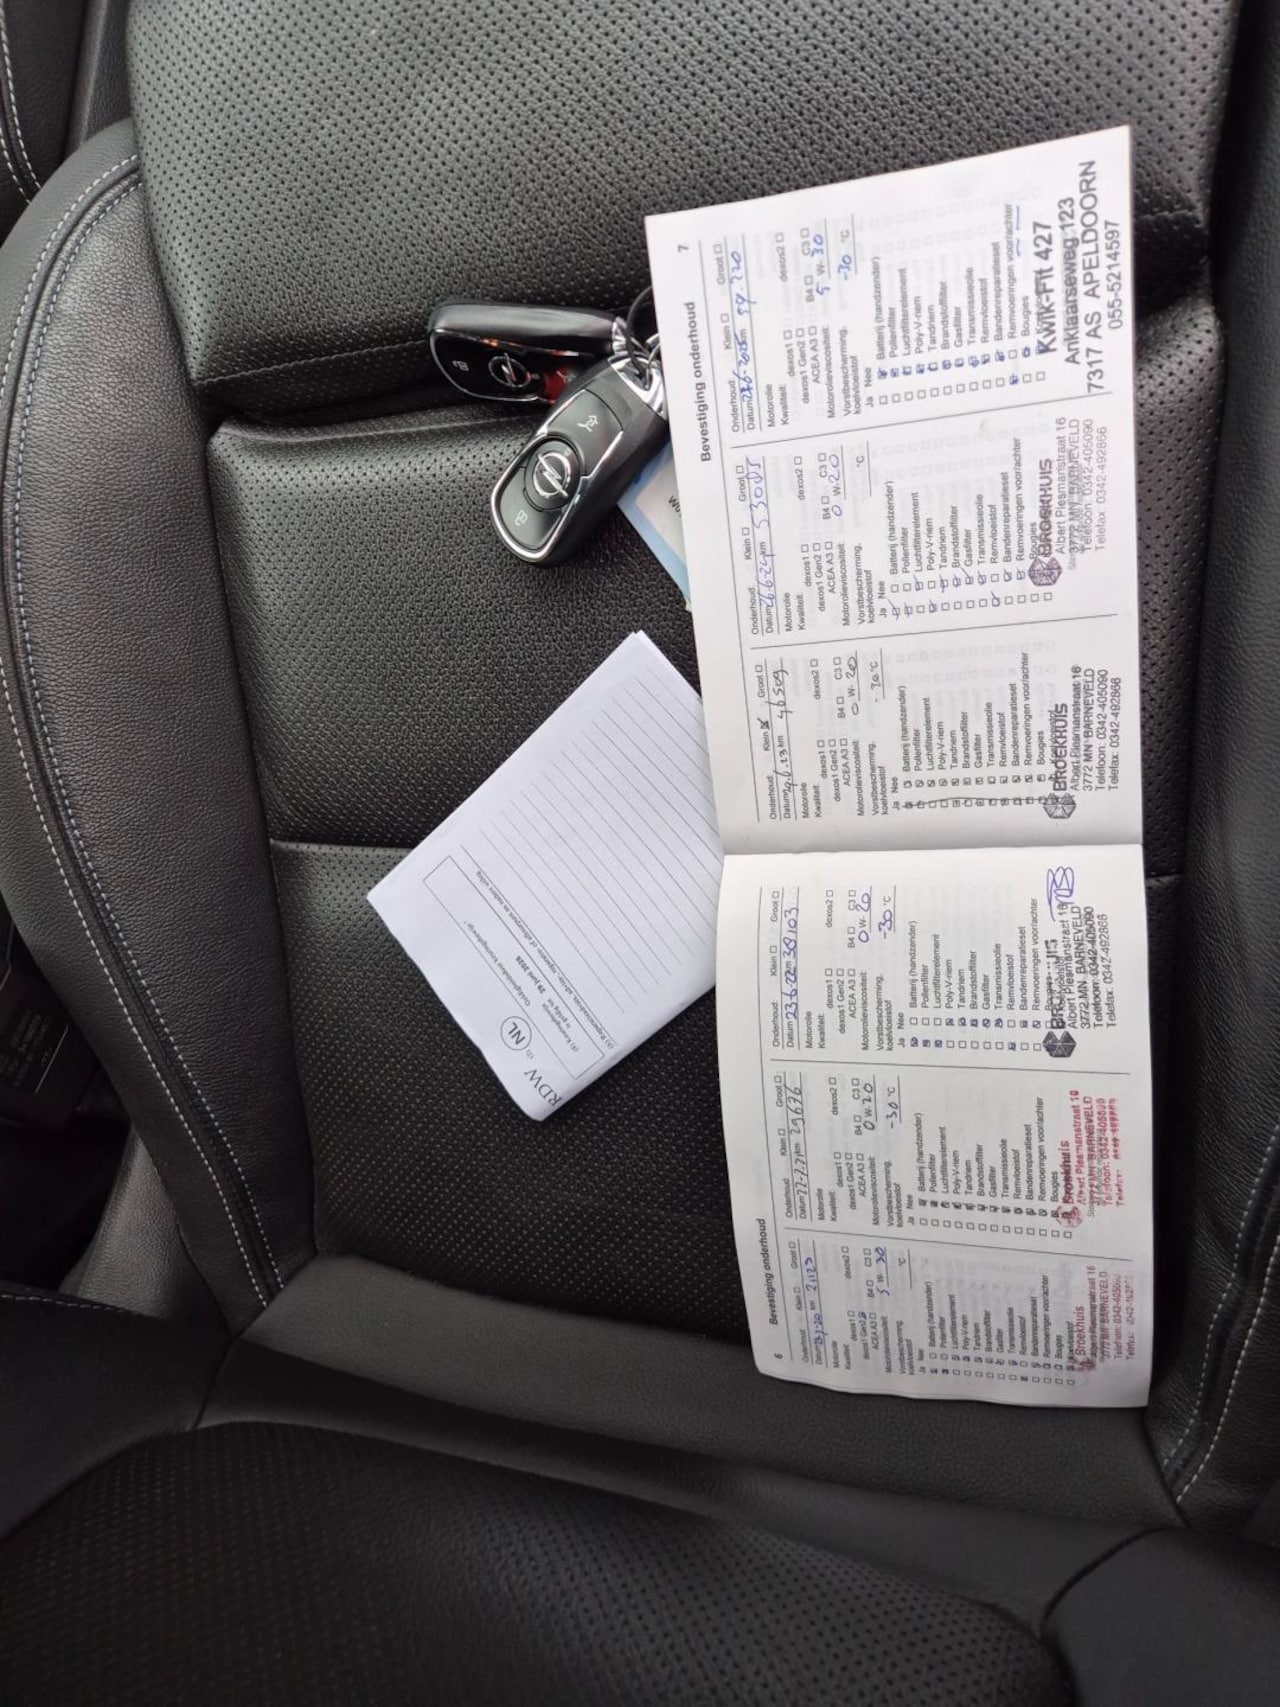 6
Bevestiging onderhoud
Onderhoud: Klein Groot
Datum km 21123
Motorolie
Kwaliteit: dexos1 dexos2
dexos1 Gen2
ACEA A3 B4 C3
Motorolieviscositeit: 5 W- 30
Vorstbescherming, koelvloeistof °C
Ja Nee
Batterij (handzender)
Pollenfilter
Luchtfilterelement
Poly-V-riem
Tandriem
Brandstoffilter
Gasfilter
Transmissieolie
Remvloeistof
Bandenreparatieset
Remvoeringen voor/achter
Bougies
Broekhuis
Albert Plesmanstraat 16
3772 MN BARNEVELD
Onderhoud: Klein Groot
Datum km 29676
Motorolie
Kwaliteit: dexos1 dexos2
dexos1 Gen2
ACEA A3 B4 C3
Motorolieviscositeit: 0 W- 20
Vorstbescherming, koelvloeistof -30 °C
Ja Nee
Batterij (handzender)
Pollenfilter
Luchtfilterelement
Poly-V-riem
Tandriem
Brandstoffilter
Gasfilter
Transmissieolie
Remvloeistof
Bandenreparatieset
Remvoeringen voor/achter
Bougies
Broekhuis
Albert Plesmanstraat 16
3772 MN BARNEVELD
Telefoon: 0342-405090
Onderhoud: Klein Groot
Datum 23-6-22 km 30103
Motorolie
Kwaliteit: dexos1 dexos2
dexos1 Gen2
ACEA A3 B4 C3
Motorolieviscositeit: 0 W- 20
Vorstbescherming, koelvloeistof -30 °C
Ja Nee
Batterij (handzender)
Pollenfilter
Luchtfilterelement
Poly-V-riem
Tandriem
Brandstoffilter
Gasfilter
Transmissieolie
Remvloeistof
Bandenreparatieset
Remvoeringen voor/achter
Bougies
Albert Plesmanstraat 16
3772 MN BARNEVELD
Telefoon: 0342-405090
Telefax: 0342-492866
7
Bevestiging onderhoud
Onderhoud: Klein Groot
Datum km 40509
Motorolie
Kwaliteit: dexos1 dexos2
dexos1 Gen2
ACEA A3 B4 C3
Motorolieviscositeit: 0 W- 20
Vorstbescherming, koelvloeistof -30 °C
Ja Nee
Batterij (handzender)
Pollenfilter
Luchtfilterelement
Poly-V-riem
Tandriem
Brandstoffilter
Gasfilter
Transmissieolie
Remvloeistof
Bandenreparatieset
Remvoeringen voor/achter
Bougies
BROEKHUIS
Albert Plesmanstraat 16
3772 MN BARNEVELD
Telefoon: 0342-405090
Telefax: 0342-492866
Onderhoud: Klein Groot
Datum 26-6-24 km 53005
Motorolie
Kwaliteit: dexos1 dexos2
dexos1 Gen2
ACEA A3 B4 C3
Motorolieviscositeit: 0 W- 20
Vorstbescherming, koelvloeistof °C
Ja Nee
Batterij (handzender)
Pollenfilter
Luchtfilterelement
Poly-V-riem
Tandriem
Brandstoffilter
Gasfilter
Transmissieolie
Remvloeistof
Bandenreparatieset
Remvoeringen voor/achter
Bougies
BROEKHUIS
Albert Plesmanstraat 16
3772 MN BARNEVELD
Telefoon: 0342-405090
Telefax: 0342-492866
Onderhoud: Klein Groot
Datum km 59.220
Motorolie
Kwaliteit: dexos1 dexos2
dexos1 Gen2
ACEA A3 B4 C3
Motorolieviscositeit: 5 W- 30
Vorstbescherming, koelvloeistof -30 °C
Ja Nee
Batterij (handzender)
Pollenfilter
Luchtfilterelement
Poly-V-riem
Tandriem
Brandstoffilter
Gasfilter
Transmissieolie
Remvloeistof
Bandenreparatieset
Remvoeringen voor/achter
Bougies
Kwik-Fit 427
Anklaarseweg 123
7317 AS APELDOORN
055-5214597
RDW
NL
29 juni 2026